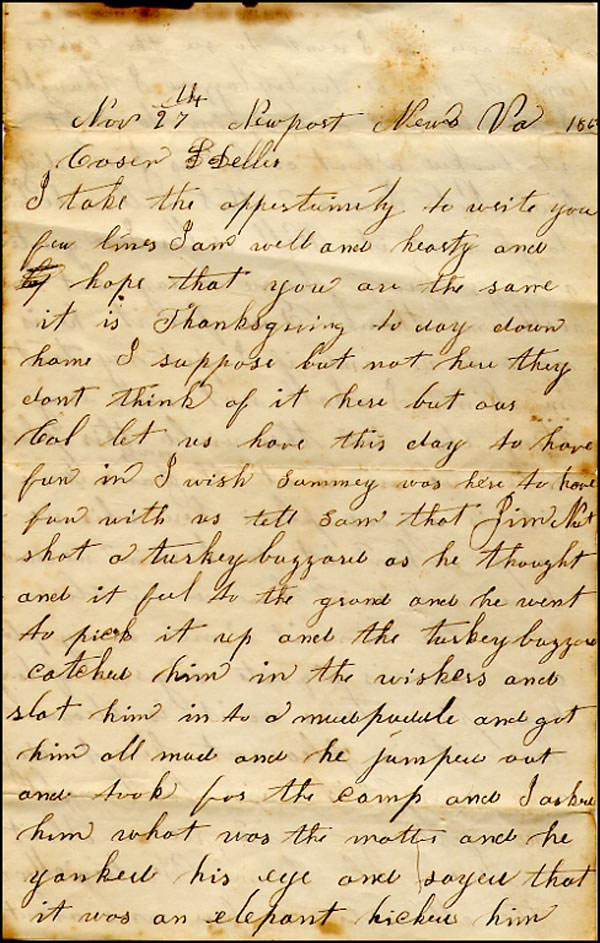 Nov 27th Newport News Va 186
Cosen L Deller
I take the oppertunity to write you
few lines I am well and hearty and
hope that you are the same
it is Thanksgiving to day down
home I suppose but not here they
dont think of it here but our
Col let us have this day to have
fun in I wish Sammey was here to have
fun with us tell Sam that Jim Nut
shot a turkeybuzzard as he thought
and it fel to the grond and he went
to pick it up and the turkeybuzzard
catched him in the wiskers and
slat him in to a mudpuddle and got
him all mud and he jumped out
and took for the camp and I asked
him what was the matter and he
yanked his eye and sayed that
it was an elepant kicked him